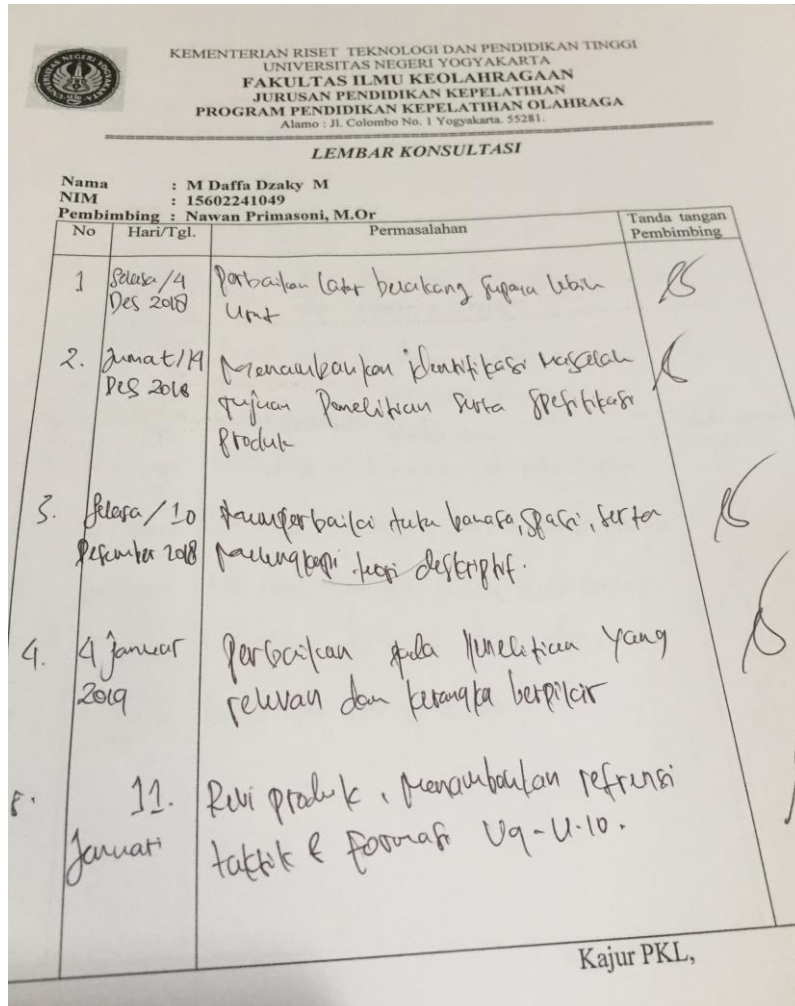 KEMENTERIAN RISET TEKNOLOGI DAN PENDIDIKAN TINGGI
UNIVERSITAS NEGERI YOGYAKARTA
FAKULTAS ILMU KEOLAHRAGAAN
JURUSAN PENDIDIKAN KEPELATIHAN
PROGRAM PENDIDIKAN KEPELATIHAN OLAHRAGA
Alamo : Jl. Colombo No. 1 Yogyakarta. 55281.
LEMBAR KONSULTASI
Nama : M Daffa Dzaky M
NIM : 15602241049
Pembimbing : Nawan Primasoni, M.Or
No Hari/Tgl. Permasalahan Tanda tangan Pembimbing
1 Selasa/4 Perbaikan latar belakang supaya lebih
Des 2018 urut
2. Jumat/14 Menambahkan identifikasi masalah
Des 2018 tujuan Penelitian serta spesifikasi
produk
3. Selasa/10 memperbaiki tata bahasa, spasi, serta
Desember 2018 melengkapi teori deskriptif.
4. 4 Januar Perbaikan pada penelitian yang
2019 relevan dan kerangka berpikir
11. produk, Menambahkan refrensi
Januari taktik & formasi U9-U.10.
Kajur PKL,